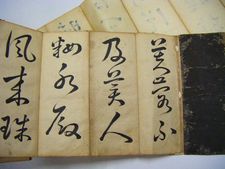 芙蓉不
及美人
粧水殿
風来珠